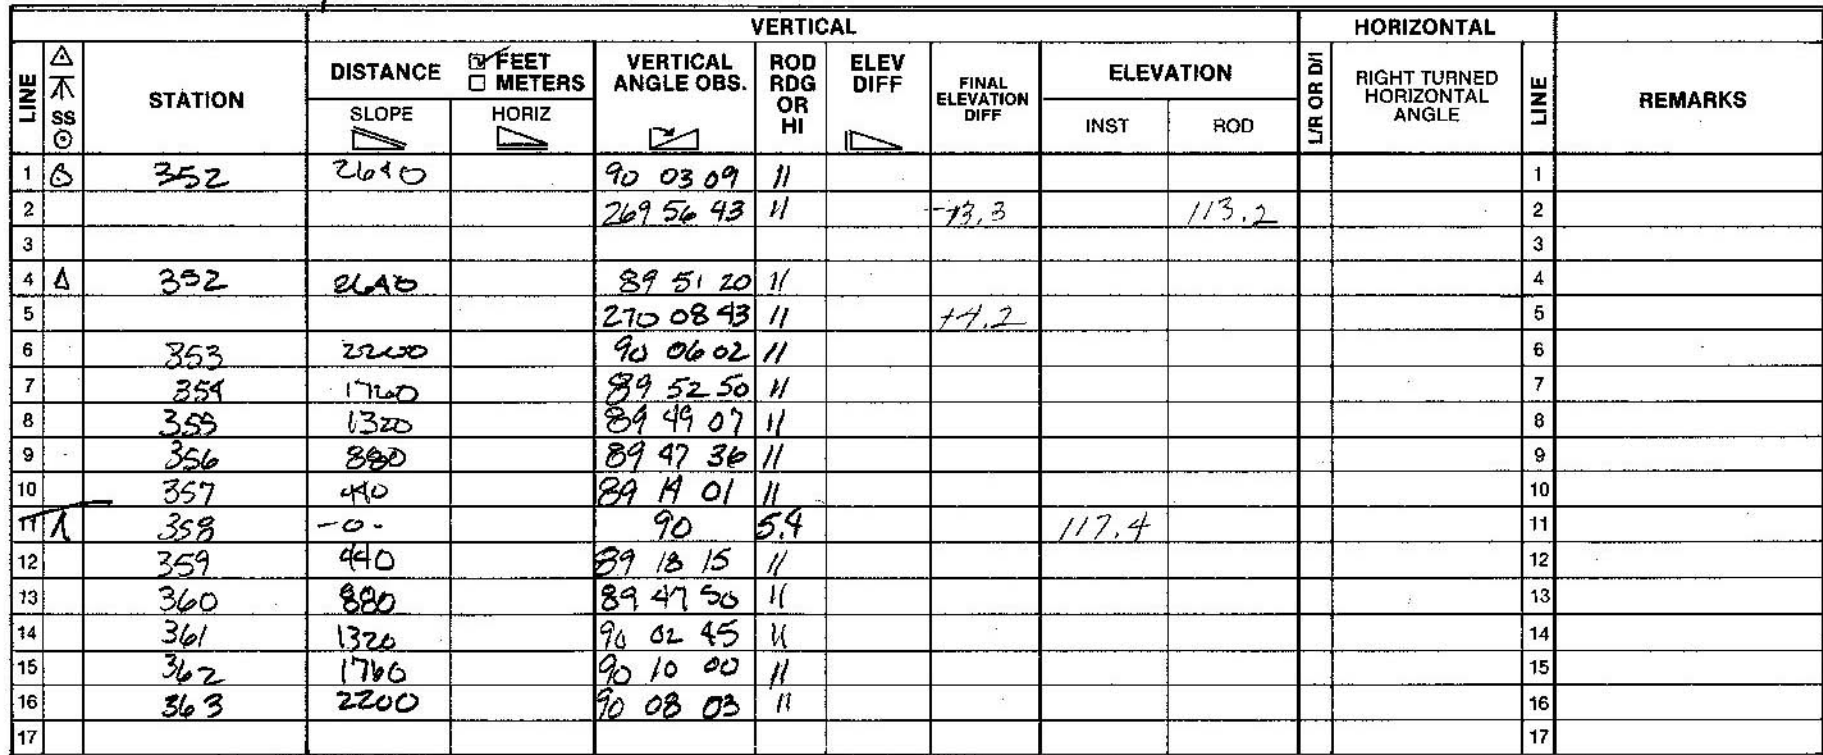 VERTICAL HORIZONTAL
LINE SS STATION DISTANCE ☑ FEET ☐ METERS SLOPE HORIZ VERTICAL ANGLE OBS. ROD RDG OR HI ELEV DIFF FINAL ELEVATION DIFF ELEVATION INST ROD L/R OR D/I RIGHT TURNED HORIZONTAL ANGLE LINE REMARKS
1 352 2640 90 03 09 11 1
2 269 56 43 11 113.2 2
3 3
4 Δ 352 2640 89 51 20 11 4
5 270 08 43 11 +4.2 5
6 353 2200 90 06 02 11 6
7 354 1760 89 52 50 11 7
8 355 1320 89 49 07 11 8
9 356 880 89 47 36 11 9
10 357 440 89 14 01 11 10
11 358 -0- 90 5.4 117.4 11
12 359 440 89 18 15 11 12
13 360 880 89 47 50 11 13
14 361 1320 90 02 45 11 14
15 362 1760 90 10 00 11 15
16 363 2200 90 08 03 11 16
17 17